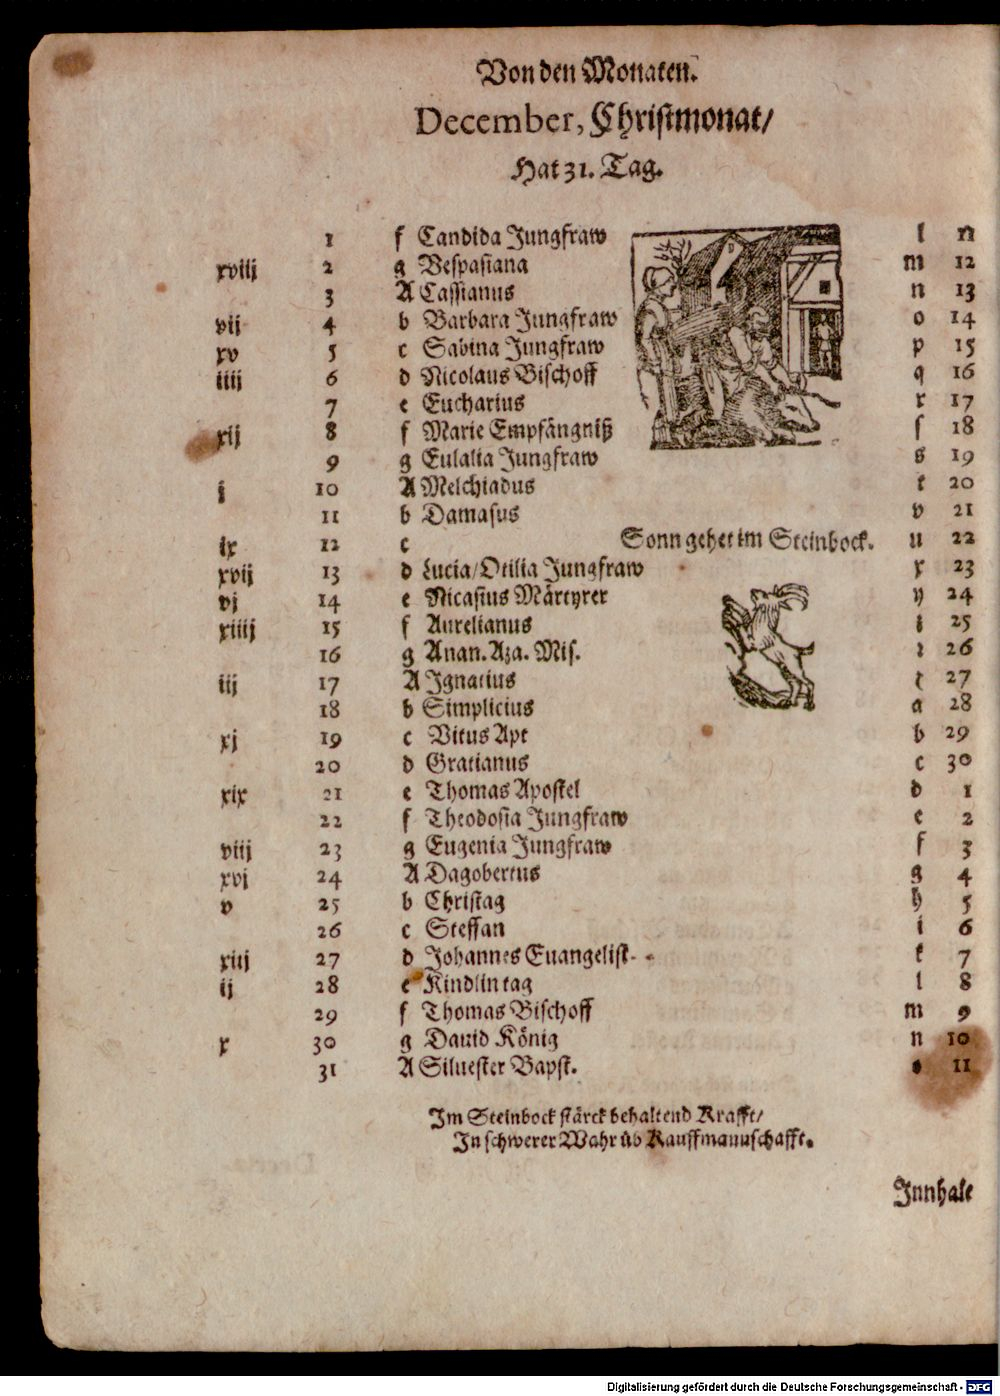 Von den Monaten.
December, Christmonat/
Hat 31. Tag.
1 f Candida Jungfraw l 11
xviij 2 g Vespasiana m 12
3 A Cassianus n 13
vij 4 b Barbara Jungfraw o 14
xv 5 c Sabina Jungfraw p 15
iiij 6 d Nicolaus Bischoff q 16
7 e Eucharius r 17
xij 8 f Marie Empfängniß ſ 18
9 g Eulalia Jungfraw s 19
j 10 A Melchiadus t 20
11 b Damasus v 21
ix 12 c Sonn gehet im Steinbock. u 22
xvij 13 d Lucia/Otilia Jungfraw x 23
vj 14 e Nicasius Märtyrer y 24
xiiij 15 f Aurelianus 25
16 g Anan. Aza. Mis. 26
iij 17 A Ignatius 27
18 b Simplicius a 28
xj 19 c Vitus Apt b 29
20 d Gratianus c 30
xix 21 e Thomas Apostel d 1
22 f Theodosia Jungfraw e 2
viij 23 g Eugenia Jungfraw f 3
xvj 24 A Dagobertus g 4
v 25 b Christag h 5
26 c Steffan i 6
xiij 27 d Johannes Euangelist k 7
ij 28 e Kindlin tag l 8
29 f Thomas Bischoff m 9
x 30 g Dauid König n 10
31 A Siluester Bapst. o 11
Im Steinbock stärck behaltend Krafft/
In schwerer Wahr üb Kauffmannschafft.
Innhalt
Digitalisierung gefördert durch die Deutsche Forschungsgemeinschaft - DFG